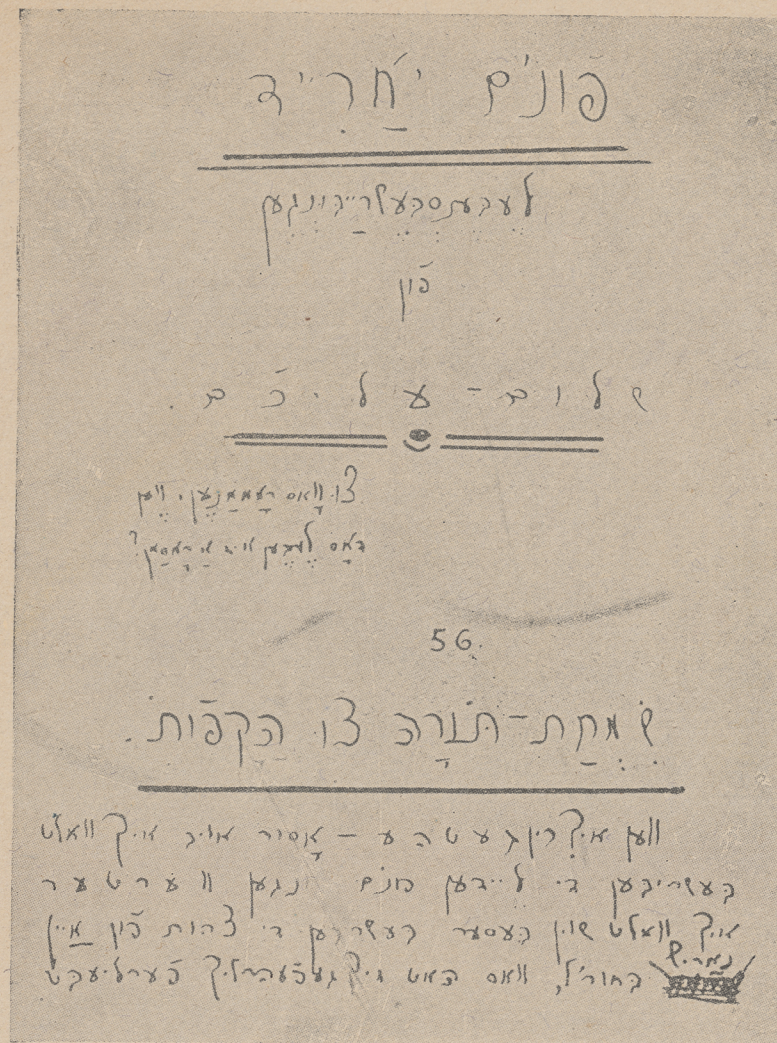 פֿונ'ם יאַריד
לעבענסבעשרייַבונגען
פֿון
שלום-עליכֿם.
צו וואָס ראָמאַנען, ווען
דאָס לעבען איז אַ ראָמאַן?
56.
שִׂמְחַת-תּוֹרָה צו הַקָפֿוֹת.
ווען איך בין געטהע — אָסור אויב איך וואלט
בעשריבען די ליידען פונ'ם יונגען ווערטער
איך וואלט שוין בעסער בעשריבען די צרות פֿון איין
נאַריש
בחור'ל, וואס האט זיך געפֿעהרליך פֿערליעבט